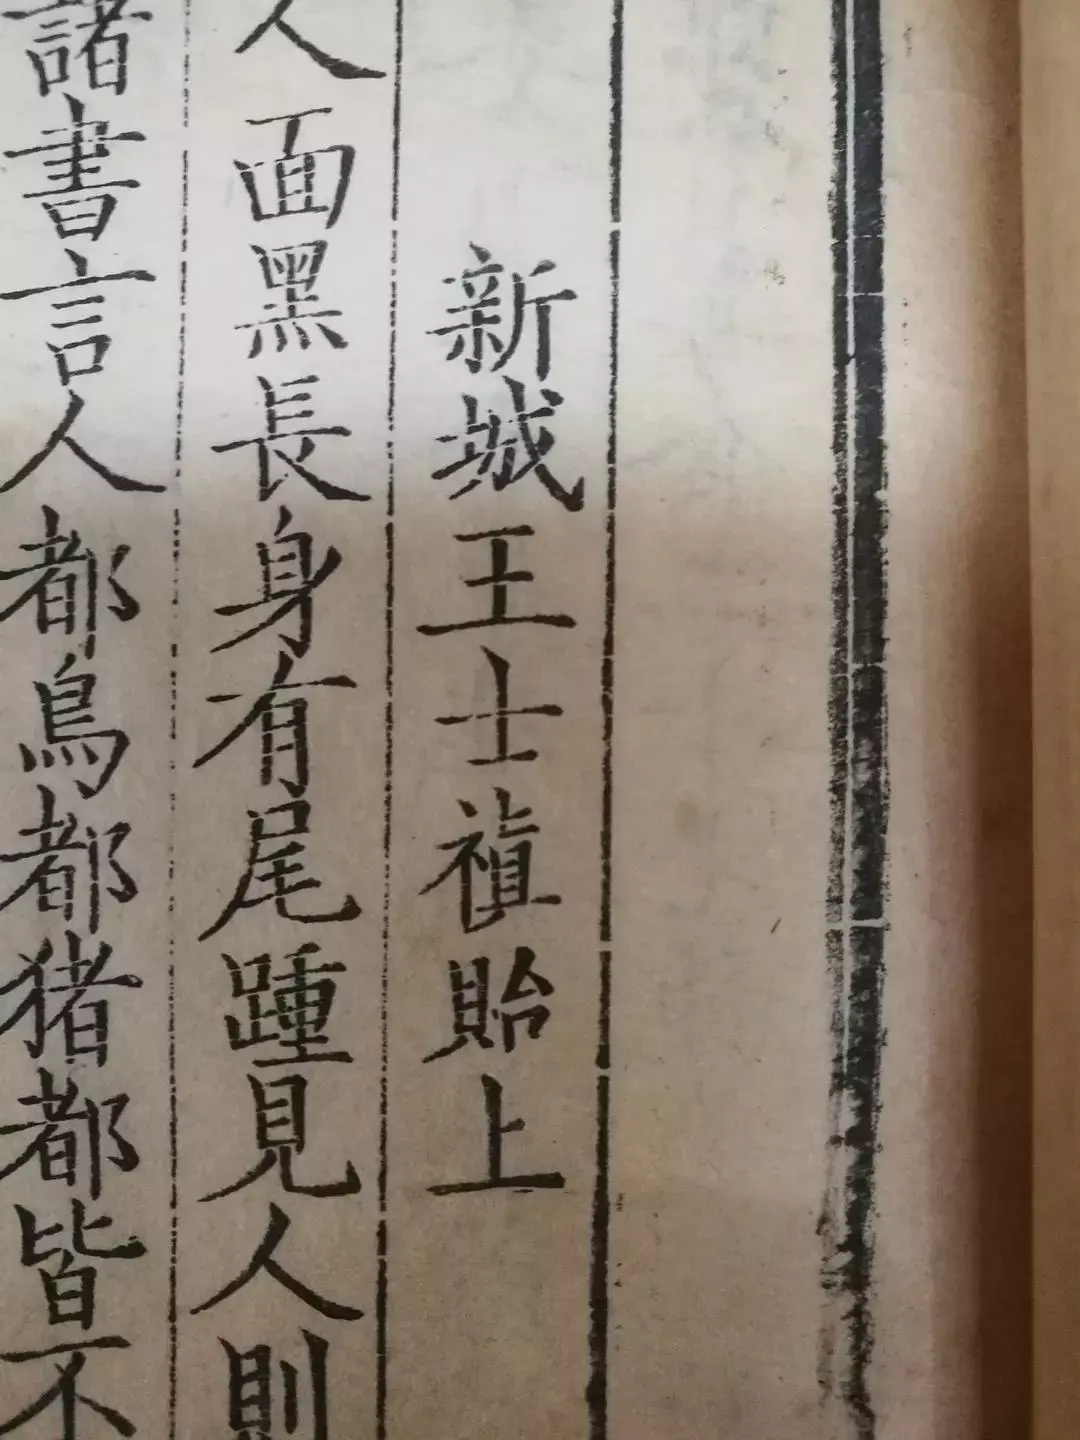 新城王士禛貽上
人面黑長身有尾踵見人則
諸書言人都鳥都猪都皆不